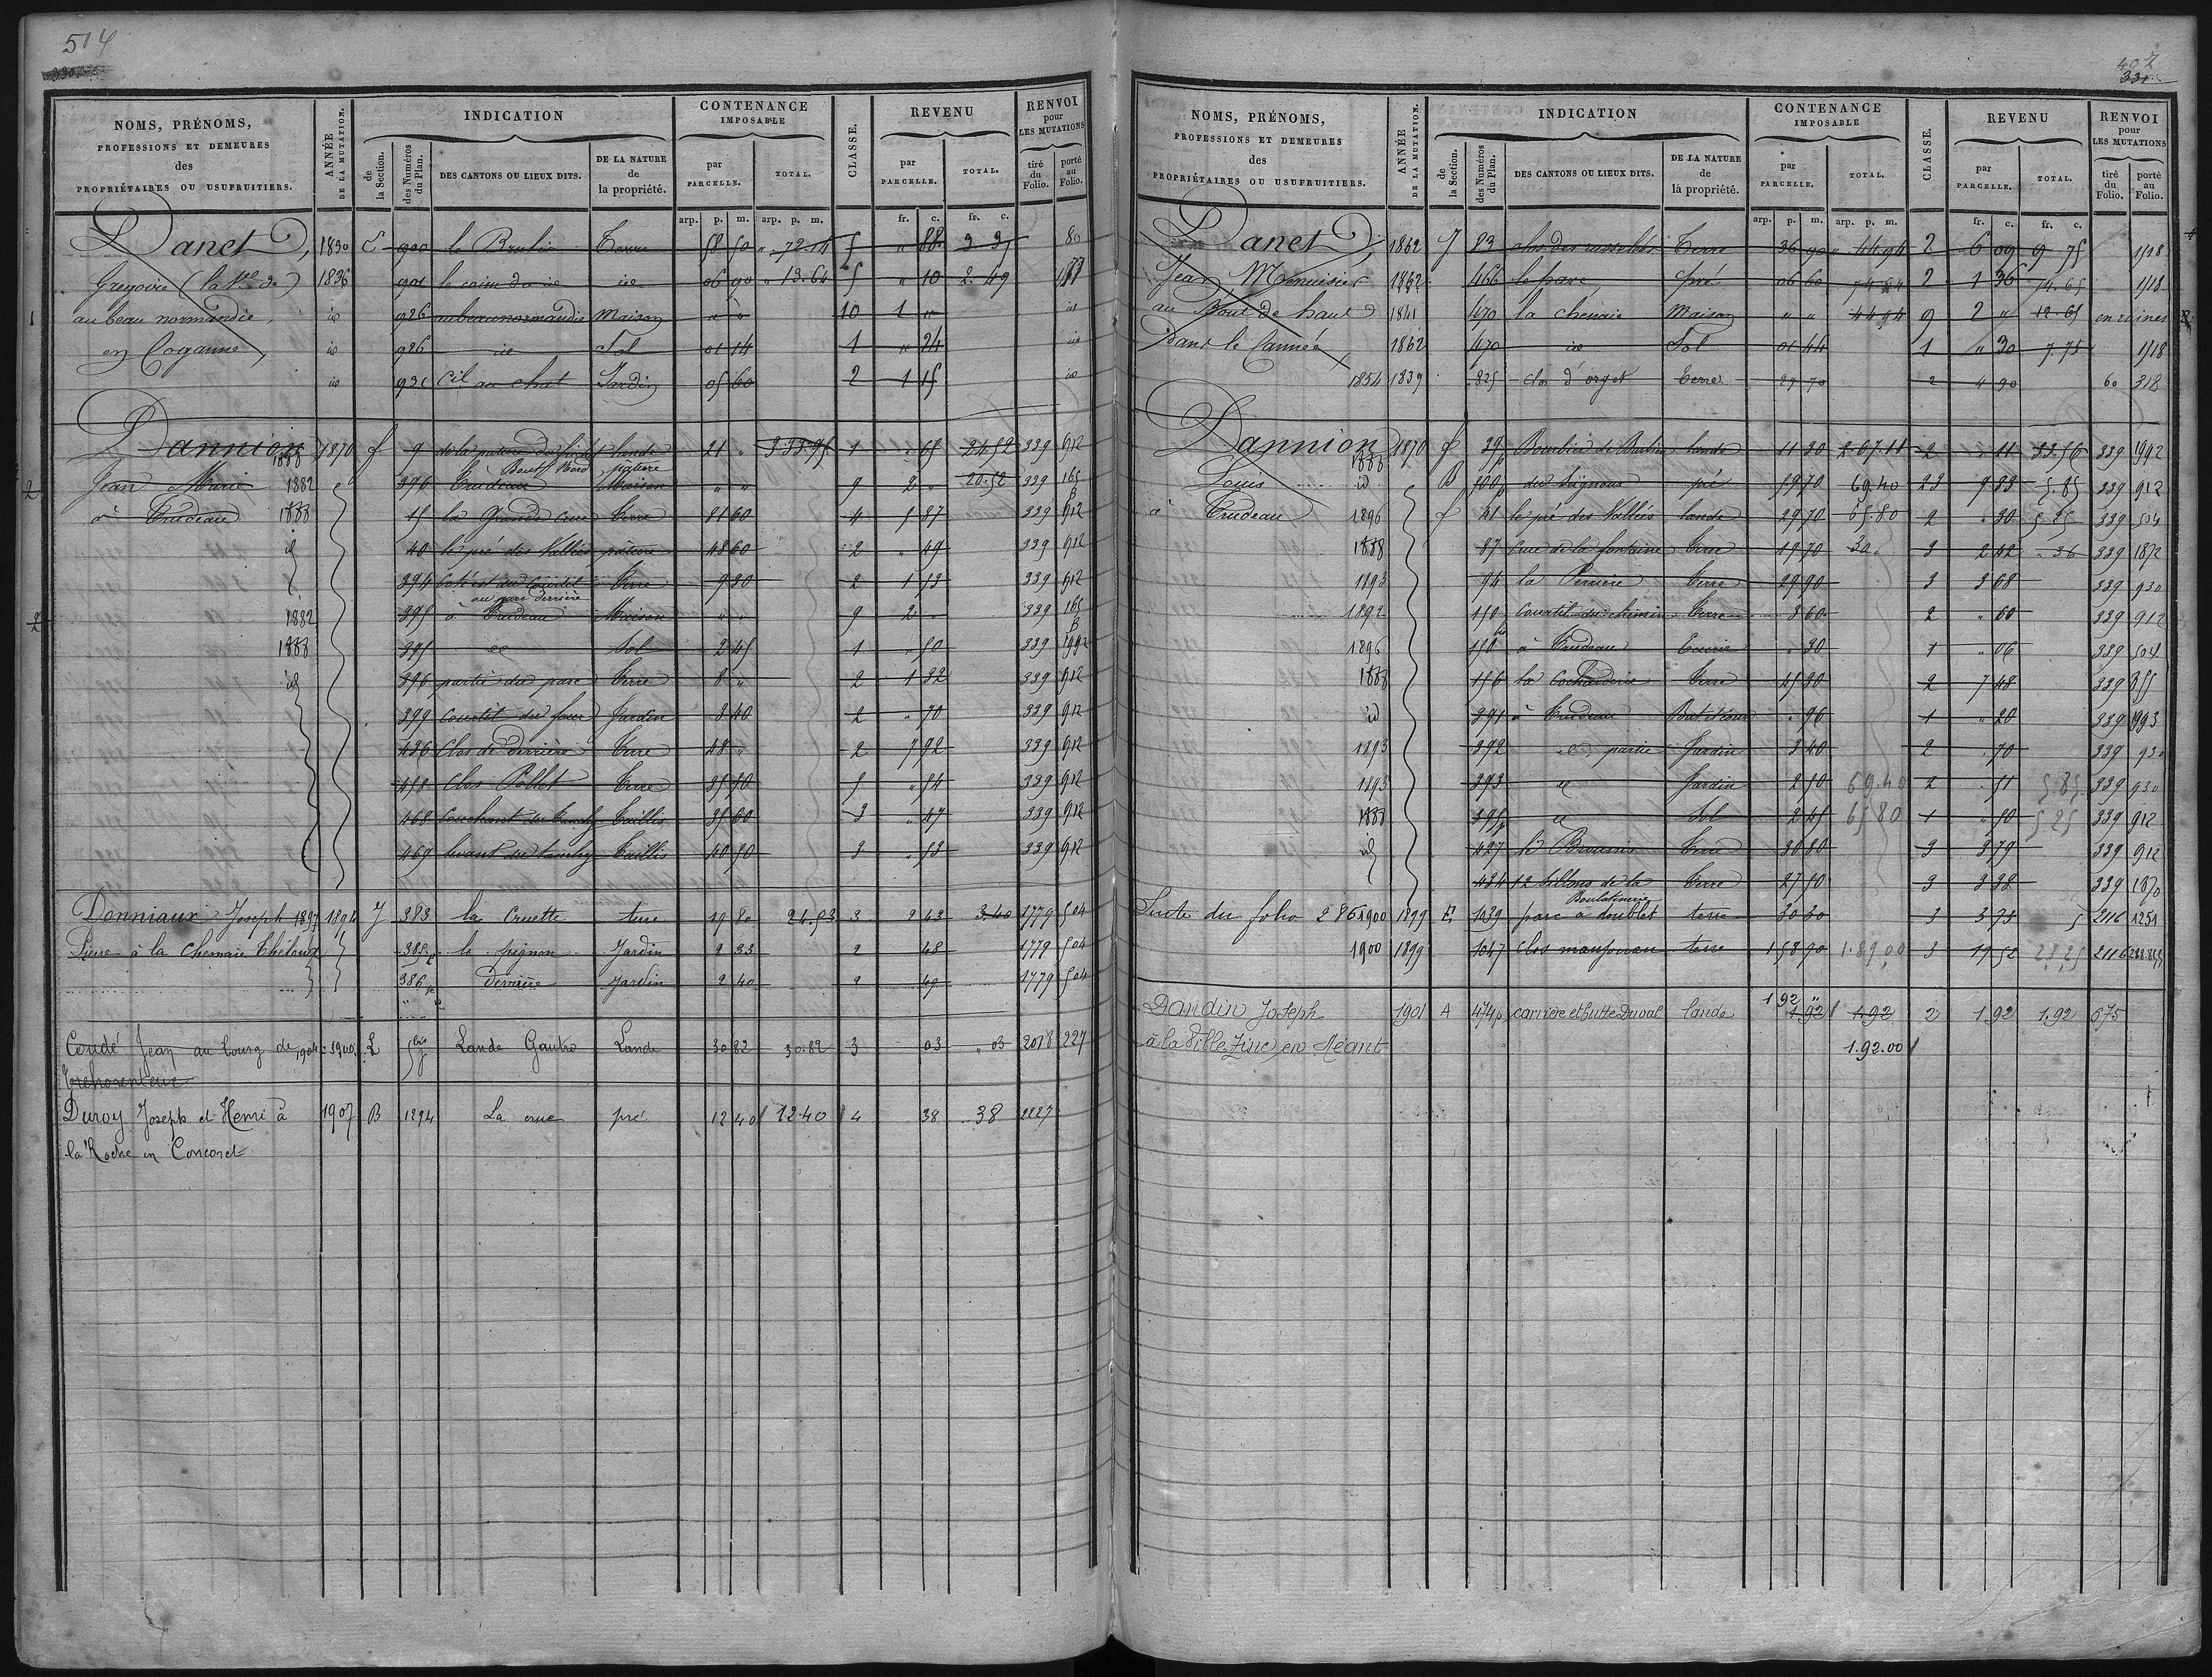 514
NOMS, PRÉNOMS, PROFESSIONS ET DEMEURES des PROPRIÉTAIRES OU USUFRUITIERS.
ANNÉE DE LA MUTATION.
INDICATION
de la Section.
des Numéros du Plan.
DES CANTONS OU LIEUX DITS.
DE LA NATURE de la propriété.
CONTENANCE IMPOSABLE
par PARCELLE.
TOTAL.
CLASSE.
REVENU
par PARCELLE.
TOTAL.
RENVOI pour LES MUTATIONS
tiré du Folio.
porté au Folio.
arp. p. m. arp. p. m. fr. c. fr. c.
Danet, 1830 C 900 le Brulin Terre 58 50 " 72 14 5 " 88 3 37 80
Gregoire (la Ve de) 1836 901 le coin du id id 06 90 " 13.64 5 " 10 2.49
au beau normandie, id 926 au beau normandie Maison " " 10 1 " id
en Coganne, id 926 id Sol 01 14 1 " 24 id
id 931 Cil au chat Jardin 05 60 2 1 15 id
Dannion 1888 1870 f 9 de la pature du hichet lande 21 " 3.33.95 1 " 65 24.52 339 912
Jean Marie 1882 376 Trudeau Bout Nord Maison " " 9 2 " 20.52 339 165 B
à Trudeau 1888 15 la grande crue terre 81 60 4 5 87 339 912
id 40 le pré des Vallées pâture 48 60 2 " 49 339 912
394 Coté est du Courtil terre 9 30 2 1 53 339 912
au parc derrière
1882 395 à Trudeau Maison " " 9 2 " 339 165 B
1888 395 id Sol 2 45 1 " 50 339 1992
id 396 partie du parc terre 8 " 2 1 32 339 912
399 Courtil du four Jardin 3 40 2 " 70 339 912
436 Clos de derrière terre 48 " 2 7 92 339 912
458 Clos Pollet terre 35 90 5 " 54 339 912
468 couchant du Taillis 35 60 3 " 47 339 912
469 levant du Taillis 40 50 3 " 53 339 912
Donniaux Joseph 1897 1894 J 383 la Cruette terre 19 80 24.53 3 2 43 3.40 1779 504
Pierre à la Chenaie Thélouet 385 le pignon Jardin 2 33 2 48 1779 504
386 derrière Jardin 2 40 2 49 1779 504
Coudé Jean au bourg de 1904 1900 L 5bis Lande Gautro Lande 30 82 30.82 3 03 " 03 2018 227
Trehorenteuc
Duroy Joseph et Henri à 1907 B 1294 La crue pré 12 40 12.40 4 38 .38 2227
la Roche en Concoret
402
331
NOMS, PRÉNOMS, PROFESSIONS ET DEMEURES des PROPRIÉTAIRES OU USUFRUITIERS.
ANNÉE DE LA MUTATION.
INDICATION
de la Section.
des Numéros du Plan.
DES CANTONS OU LIEUX DITS.
DE LA NATURE de la propriété.
CONTENANCE IMPOSABLE
par PARCELLE.
TOTAL.
CLASSE.
REVENU
par PARCELLE.
TOTAL.
RENVOI pour LES MUTATIONS
tiré du Folio.
porté au Folio.
arp. p. m. arp. p. m. fr. c. fr. c.
Danet, 1862 J 83 clos des Terre 36 90 " 44.94 2 6 09 9 75 1518
Jean Menuisier 1862 466 le parc pré 06 60 2 1 36 14.65 1518
au Bout de haut 1841 470 la chenaie Maison " " 44 94 9 2 " 12.65 en ruines
Dans le Cannée 1862 470 id Sol 01 44 1 " 30 7.75 1518
1854 1839 825 clos d'orget terre 29 70 2 4 90 60 318
Dannion 1888 1870 f 39p Bourbier de Burlin lande 11 30 2.67.11 2 " 11 33.56 339 1992
Louis id B 500p des Seignous pré 59 70 69.40 23 9 83 5.85 339 912
à Trudeau 1896 f 41 le pré des Vallées lande 29 70 65.80 2 " 30 5.25 339 504
1888 87 Crue de la fontaine terre 19 70 30 " 3 2 42 " 36 339 1872
1893 94 la Perrière terre 29 90 3 3 68 339 930
1892 150 Courtil du chemin terre 3 60 2 " 60 339 912
1896 150bis à Trudeau Ecurie " 30 1 " 06 339 504
1888 156 la Cocharderie terre 45 30 2 7 48 339 855
id 391 à Trudeau " 96 1 " 20 339 1993
1893 392 id, partie Jardin 3 40 2 " 70 339 930
1893 393 id Jardin 2 50 69.40 2 " 51 5.85 339 930
1888 395p id Sol 2 45 65 80 1 " 50 5 25 339 912
id 427 le Broussis terre 30 80 3 3 79 339 912
434 12 Sillons de la Boulatinerie terre 27 50 3 3 38 339 1870
Suite du folio 286 1900 1899 E 1039 parc à doublet terre 30 30 3 3 73 5 2116 1251
1900 1899 1047 Clos maupouau terre 158 90 1.89.00 3 19 52 23.25 2116
Dandin Joseph 1901 A 474p carrière et butte Duval lande 1 92 " 1 92 2 1 92 1.92 675
à la Ville Zinc, en Néant 1.92.00